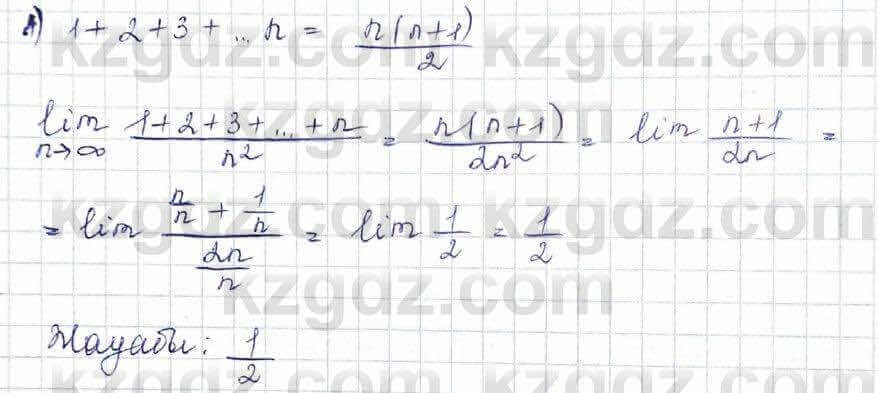 А) 1 + 2 + 3 + ... n = n(n+1)/2
lim n→∞ (1+2+3+...+n)/n² = n(n+1)/2n² = lim (n+1)/2n =
= lim (n/n + 1/n)/(2n/n) = lim 1/2 = 1/2
Жауабы: 1/2
kzgdz.com kzgdz.com
kzgdz.com
kzgdz.com kzgdz.com
kzgdz.com
kzgdz.com kzgdz.com